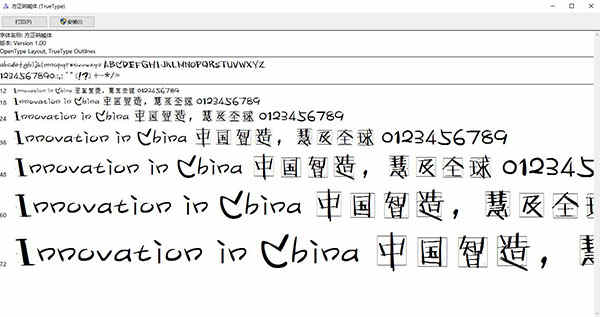 方正呐喊体 (TrueType)
打印(P) 安装(I)
字体名称: 方正呐喊体
版本: Version 1.00
OpenType Layout, TrueType Outlines
abcdefghijklmnopqrstuvwxyz ABCDEFGHIJKLMNOPQRSTUVWXYZ
1234567890.:,;'"(!?)+-*/=
12 Innovation in China 中国智造，慧及全球 0123456789
18 Innovation in China 中国智造，慧及全球 0123456789
24 Innovation in China 中国智造，慧及全球 0123456789
36 Innovation in China 中国智造，慧及全球 0123456789
48 Innovation in China 中国智造，慧及全球 012345
60 Innovation in China 中国智造，慧及全
72 Innovation in China 中国智造，